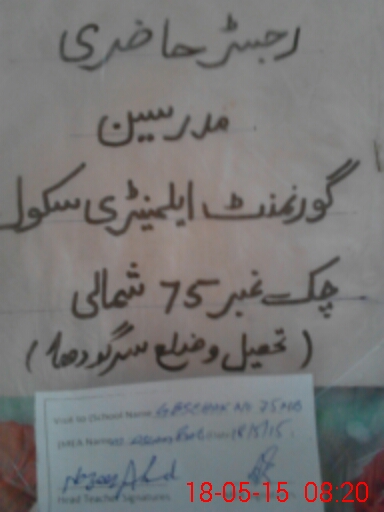 رجسٹر حاضری
مدرسین
گورنمنٹ ایلمینٹری سکول
چک نمبر 75 شمالی
(تحصیل و ضلع سرگودھا)
Visit to (School Name) CHAK NO. 75 NB
(MEA Name) 18/5/15
Head Teacher Signatures
18-05-15 08:20